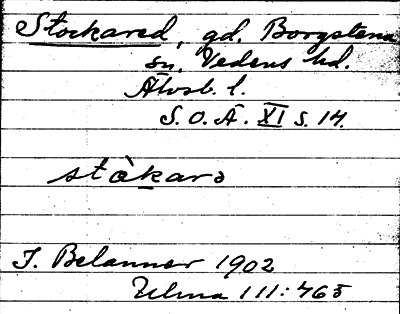 Stockared, gd. Borgstena
sn, Vedens hd.
Älvsb. l.
S. O. Ä. XI s. 14.
stàkarə
J. Belanner 1902
Ulma 111: 465